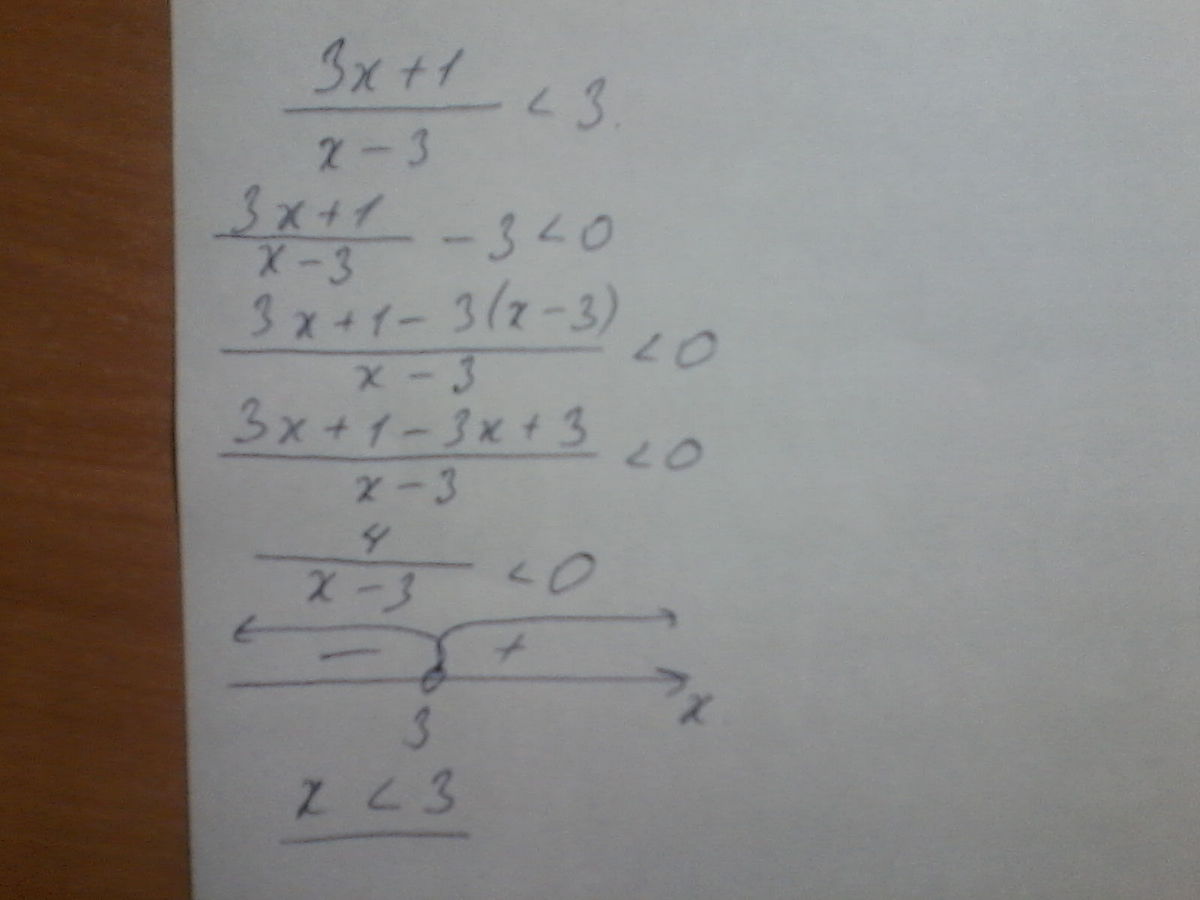 3x+1
──── < 3.
x-3
3x+1
──── - 3 < 0
x-3
3x+1-3(x-3)
─────────── < 0
x-3
3x+1-3x+3
───────── < 0
x-3
4
─── < 0
x-3
- +
3 x
x < 3